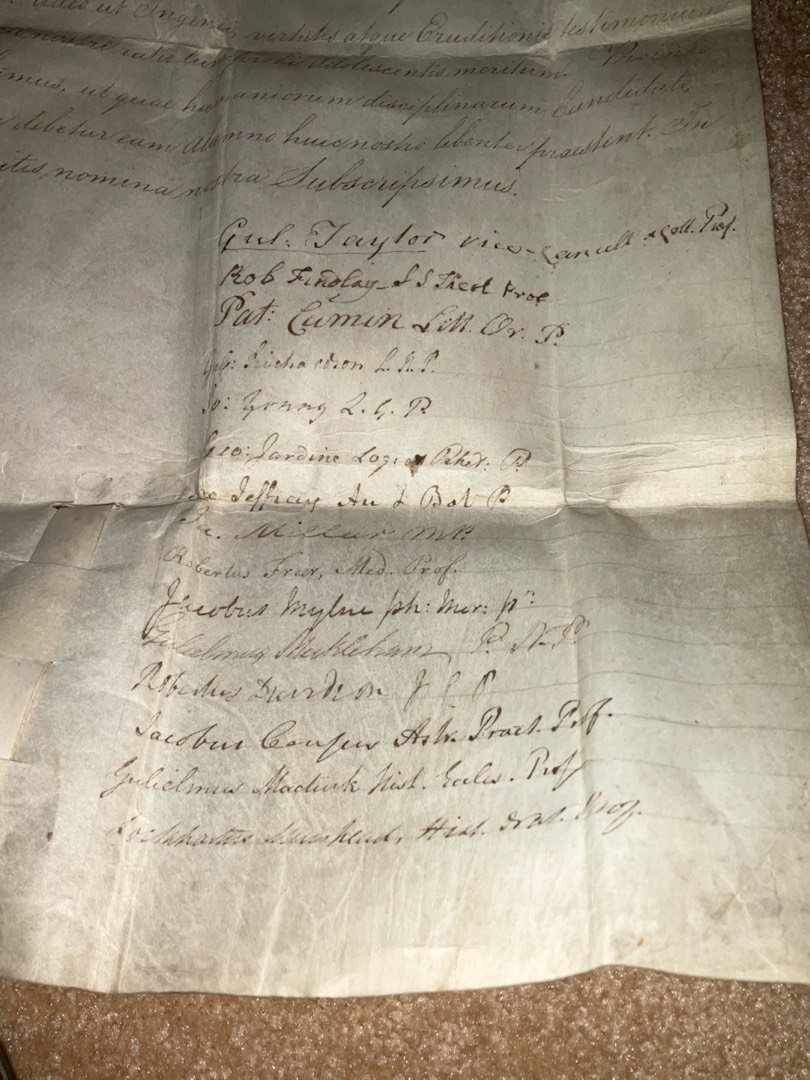 adeo ut Ingenii, virtutis atque Eruditionis testimonium
nostro ratio tum probi adolescentis meritum.
ut quae humaniorum disciplinarum Candidato
debetur eam Alumno huic nostro libenter praestent. In
nomina nostra Subscripsimus.
Gul: Taylor Vice-Cancell & Coll. Prof.
Rob Findlay S S Theol Prof
Pat: Cumin Litt. Or. P.
Richardson L. H. P.
Jo: Young L. G. P.
Geo: Jardine Log: & Rhet: P.
Jeffray An & Bot P
Jo. Millar M P.
Robertus Freer, Med. Prof.
Jacobus Mylne ph: Mor: pr:
Gulielmus Meikleham P. N. P.
Robertus Davidson J C P
Jacobus Couper Astr. Pract. Prof.
Gulielmus Macturk Hist. Eccles. Prof
Lockhartus Muirhead, Hist. Nat. Prof.